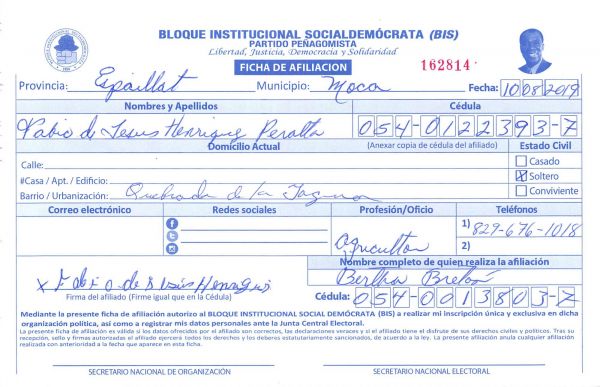 BLOQUE INSTITUCIONAL SOCIALDEMÓCRATA (BIS)
PARTIDO PEÑAGOMISTA
Libertad, Justicia, Democracia y Solidaridad
FICHA DE AFILIACION
162814
Provincia: Espaillat Municipio: Moca Fecha: 10/08/2019
Nombres y Apellidos Cédula
Fabio de Jesus Henriquez Peralta 054-0122393-7
Domicilio Actual (Anexar copia de cédula del afiliado) Estado Civil
Calle: Casado
#Casa / Apt. / Edificio: X Soltero
Barrio / Urbanización: Quebrada de la Jagua Conviviente
Correo electrónico Redes sociales Profesión/Oficio Teléfonos
1) 829-676-1018
Agricultor 2)
Nombre completo de quien realiza la afiliación
x Fabio de Jesús Henriquez Bertha Bretón
Firma del afiliado (Firme igual que en la Cédula) Cédula: 054-0013803-7
Mediante la presente ficha de afiliación autorizo al BLOQUE INSTITUCIONAL SOCIAL DEMÓCRATA (BIS) a realizar mi inscripción única y exclusiva en dicha
organización política, así como a registrar mis datos personales ante la Junta Central Electoral.
La presente ficha de afiliación es valida si los datos ofrecidos por el afiliado son correctos, las declaraciones veraces y si el afiliado tiene el disfrute de sus derechos civiles y políticos. Tras su
recepción, sello y firmas autorizadas el afiliado ejercerá todos los derechos y los deberes estatutariamente sancionados, de acuerdo a la ley. La presente afiliación anula cualquier afiliación
realizada con anterioridad a la fecha que aparece en esta ficha.
SECRETARIO NACIONAL DE ORGANIZACIÓN SECRETARIO NACIONAL ELECTORAL